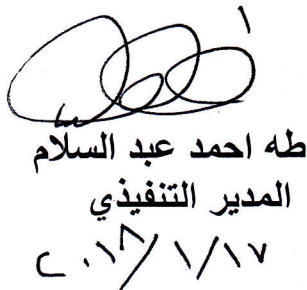 طه احمد عبد السلام
المدير التنفيذي
٢٠١٨/١/١٧